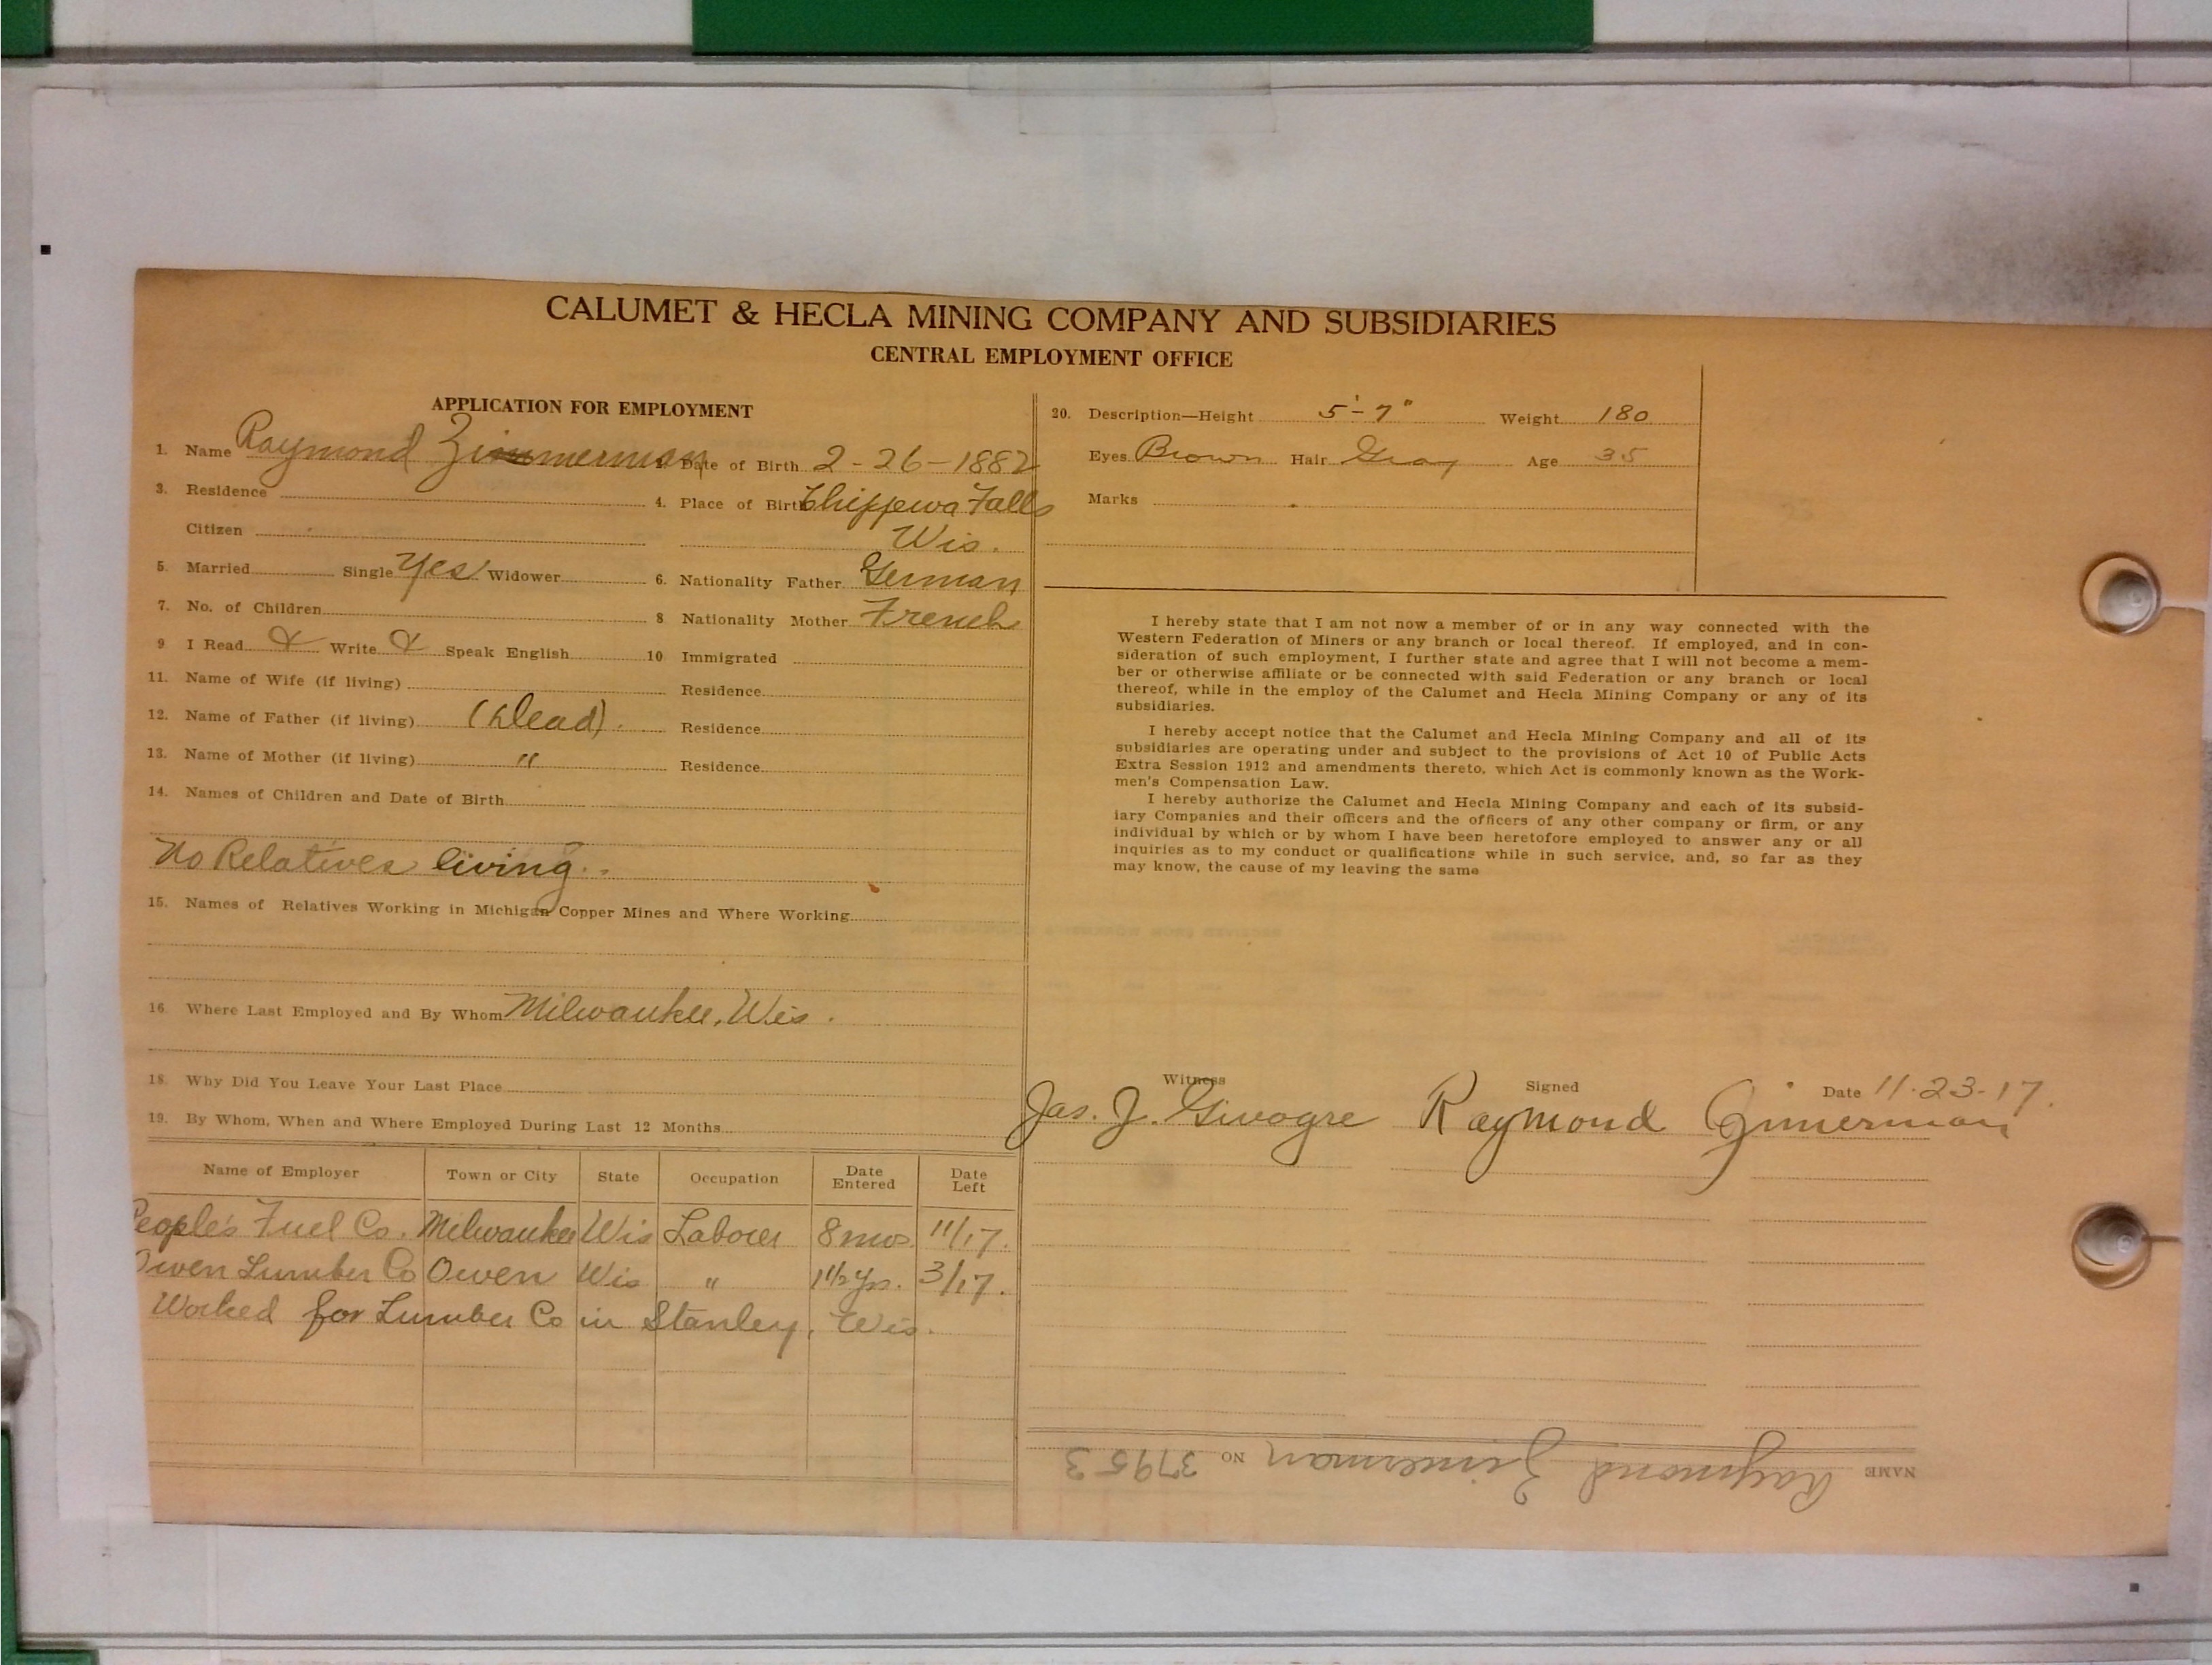 CALUMET & HECLA MINING COMPANY AND SUBSIDIARIES
CENTRAL EMPLOYMENT OFFICE
APPLICATION FOR EMPLOYMENT
1. Name Raymond Zimmerman Date of Birth 2-26-1882
3. Residence 4. Place of Birth Chippewa Falls
Citizen Wis.
5. Married Single Yes Widower 6. Nationality Father German
7. No. of Children 8 Nationality Mother French
9 I Read X Write X Speak English 10 Immigrated
11. Name of Wife (if living) Residence
12. Name of Father (if living) (Dead). Residence
13. Name of Mother (if living) " Residence
14. Names of Children and Date of Birth
No Relatives living.
15. Names of Relatives Working in Michigan Copper Mines and Where Working
16. Where Last Employed and By Whom Milwaukee, Wis.
18. Why Did You Leave Your Last Place
19. By Whom, When and Where Employed During Last 12 Months
Name of Employer Town or City State Occupation Date Entered Date Left
People's Fuel Co. Milwaukee Wis Laborer 8 mos. 11/17.
Owen Lumber Co Owen Wis " 1 1/2 yrs. 3/17.
Worked for Lumber Co in Stanley, Wis.
20. Description—Height 5'-7" Weight 180
Eyes Brown Hair Gray Age 35
Marks
I hereby state that I am not now a member of or in any way connected with the
Western Federation of Miners or any branch or local thereof. If employed, and in con-
sideration of such employment, I further state and agree that I will not become a mem-
ber or otherwise affiliate or be connected with said Federation or any branch or local
thereof, while in the employ of the Calumet and Hecla Mining Company or any of its
subsidiaries.
I hereby accept notice that the Calumet and Hecla Mining Company and all of its
subsidiaries are operating under and subject to the provisions of Act 10 of Public Acts
Extra Session 1912 and amendments thereto, which Act is commonly known as the Work-
men's Compensation Law.
I hereby authorize the Calumet and Hecla Mining Company and each of its subsid-
iary Companies and their officers and the officers of any other company or firm, or any
individual by which or by whom I have been heretofore employed to answer any or all
inquiries as to my conduct or qualifications while in such service, and, so far as they
may know, the cause of my leaving the same
Witness Signed Date 11-23-17.
Jas. J. Raymond Zimerman
NAME Raymond Zimerman NO 37953